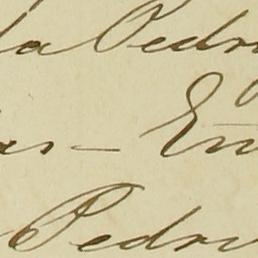 la Pedr
as - En
Pedro